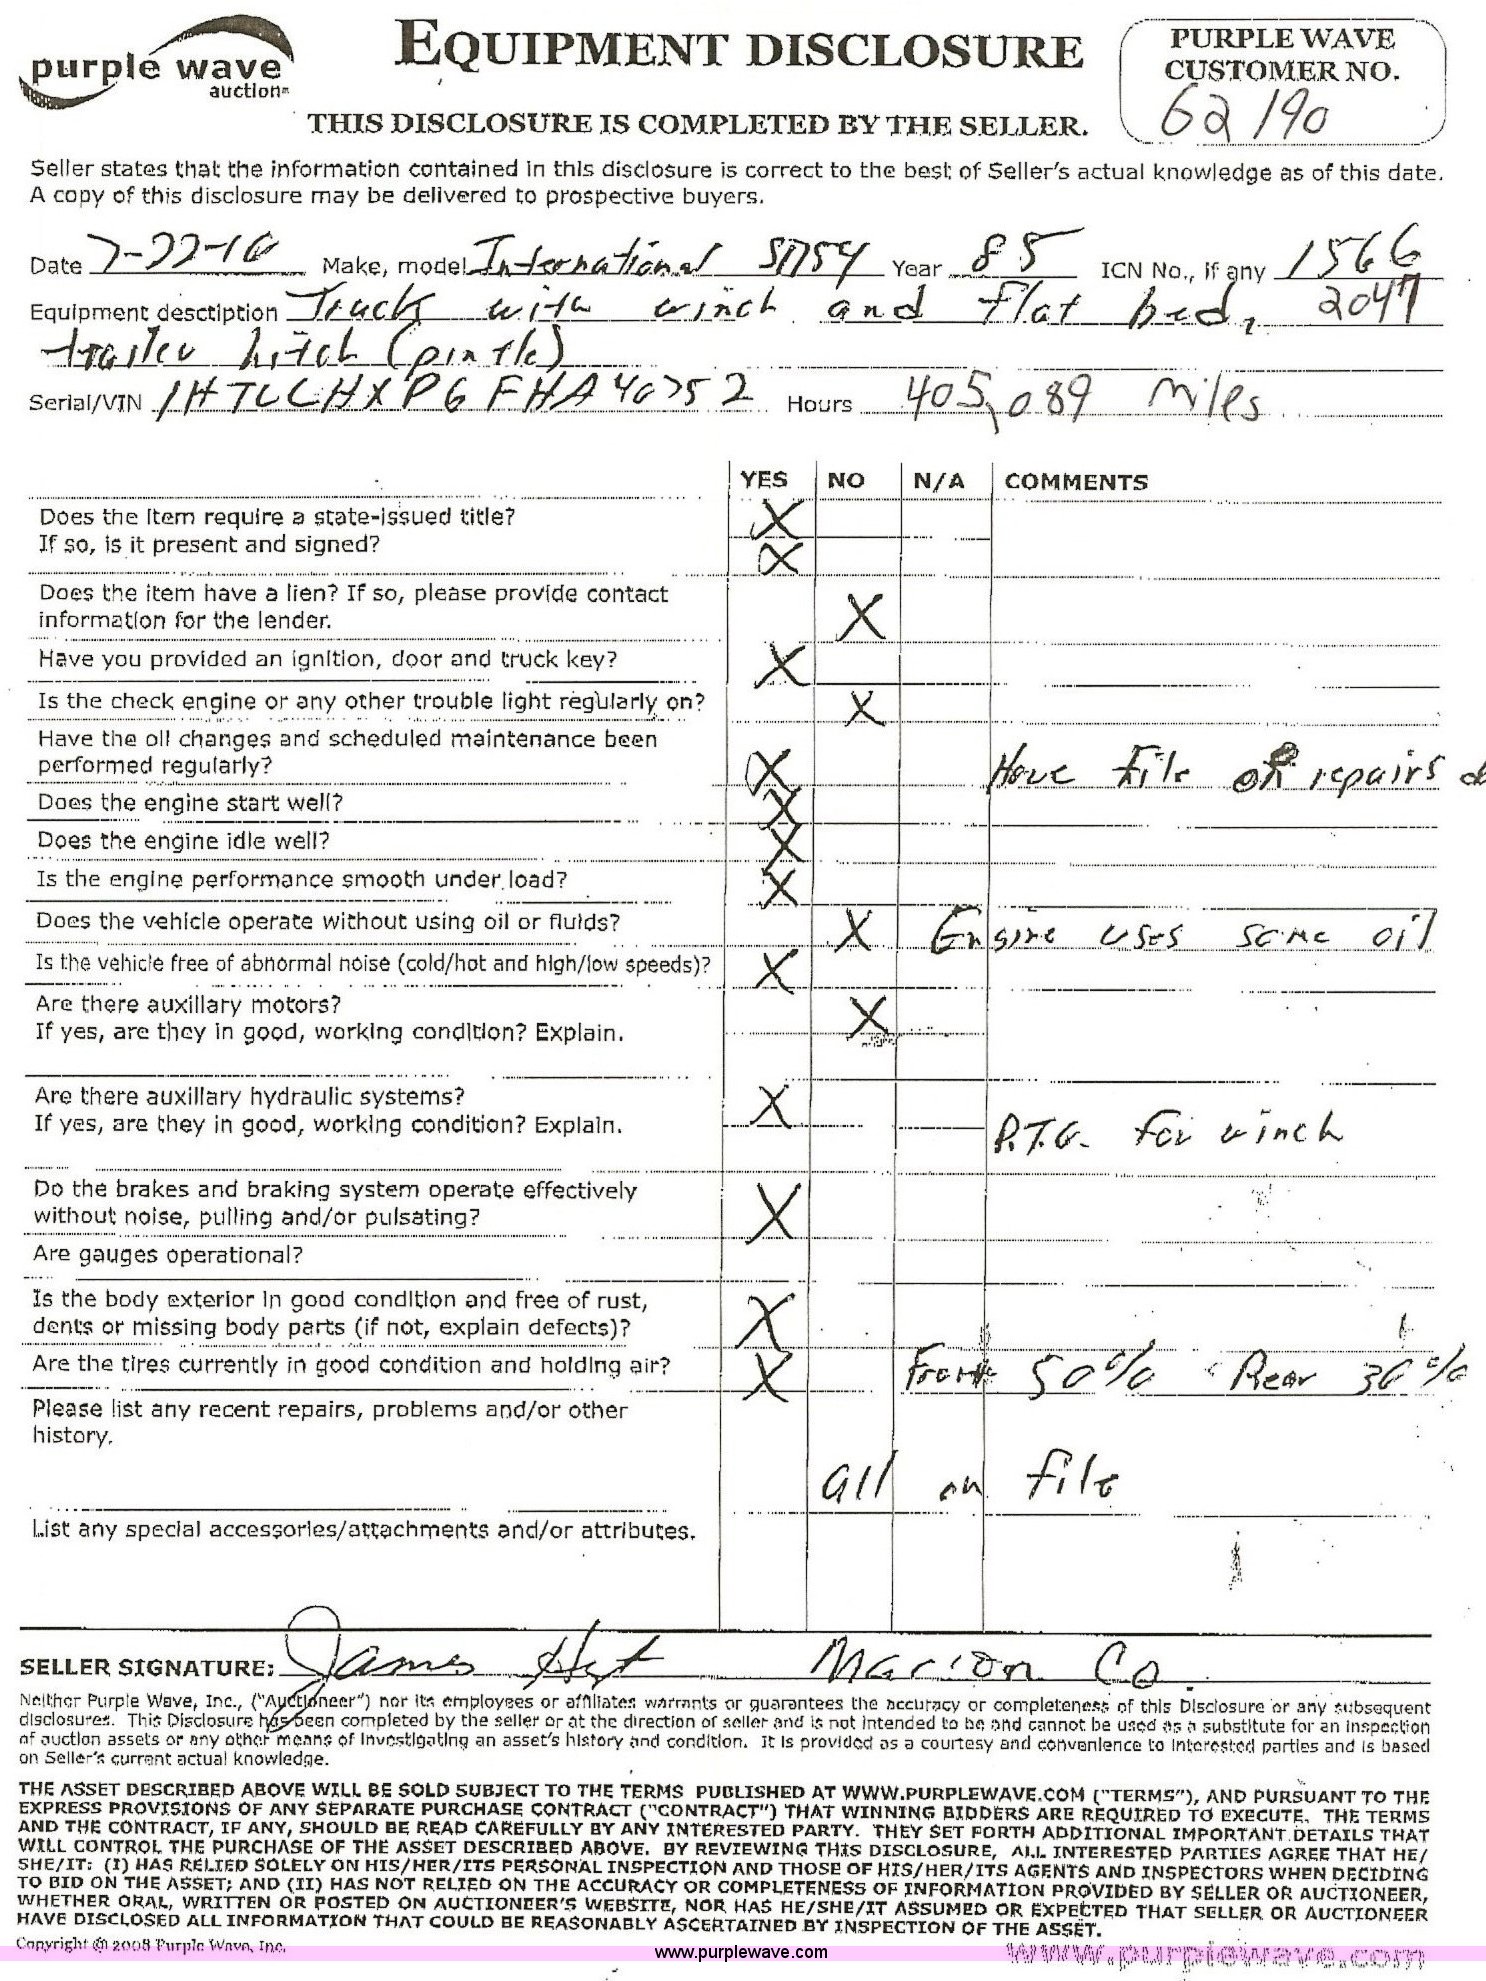 purple wave
auction
EQUIPMENT DISCLOSURE
PURPLE WAVE
CUSTOMER NO.
62190
THIS DISCLOSURE IS COMPLETED BY THE SELLER.
Seller states that the information contained in this disclosure is correct to the best of Seller's actual knowledge as of this date.
A copy of this disclosure may be delivered to prospective buyers.
Date 7-22-10 Make, model International S1754 Year 85 ICN No., if any 1566
Equipment desctiption Truck with winch and flat bed, 2047
trailer hitch (pintle)
Serial/VIN 1HTLCHXPGFHA40752 Hours 405,089 miles
YES NO N/A COMMENTS
Does the item require a state-issued title? X
If so, is it present and signed? X
Does the item have a lien? If so, please provide contact
information for the lender. X
Have you provided an ignition, door and truck key? X
Is the check engine or any other trouble light regularly on? X
Have the oil changes and scheduled maintenance been
performed regularly? X Have file of repairs
Does the engine start well? X
Does the engine idle well? X
Is the engine performance smooth under load? X
Does the vehicle operate without using oil or fluids? X Engine uses some oil
Is the vehicle free of abnormal noise (cold/hot and high/low speeds)? X
Are there auxillary motors? X
If yes, are they in good, working condition? Explain.
Are there auxillary hydraulic systems? X
If yes, are they in good, working condition? Explain. P.T.O. for winch
Do the brakes and braking system operate effectively
without noise, pulling and/or pulsating? X
Are gauges operational?
Is the body exterior in good condition and free of rust,
dents or missing body parts (if not, explain defects)? X
Are the tires currently in good condition and holding air? X Front 50% Rear 30%
Please list any recent repairs, problems and/or other
history.
all on file
List any special accessories/attachments and/or attributes.
SELLER SIGNATURE: James Marion Co.
Neither Purple Wave, Inc., ("Auctioneer") nor its employees or affiliates warrants or guarantees the accuracy or completeness of this Disclosure or any subsequent
disclosures. This Disclosure has been completed by the seller or at the direction of seller and is not intended to be and cannot be used as a substitute for an inspection
of auction assets or any other means of investigating an asset's history and condition. It is provided as a courtesy and convenience to interested parties and is based
on Seller's current actual knowledge.
THE ASSET DESCRIBED ABOVE WILL BE SOLD SUBJECT TO THE TERMS PUBLISHED AT WWW.PURPLEWAVE.COM ("TERMS"), AND PURSUANT TO THE
EXPRESS PROVISIONS OF ANY SEPARATE PURCHASE CONTRACT ("CONTRACT") THAT WINNING BIDDERS ARE REQUIRED TO EXECUTE. THE TERMS
AND THE CONTRACT, IF ANY, SHOULD BE READ CAREFULLY BY ANY INTERESTED PARTY. THEY SET FORTH ADDITIONAL IMPORTANT DETAILS THAT
WILL CONTROL THE PURCHASE OF THE ASSET DESCRIBED ABOVE. BY REVIEWING THIS DISCLOSURE, ALL INTERESTED PARTIES AGREE THAT HE/
SHE/IT: (I) HAS RELIED SOLELY ON HIS/HER/ITS PERSONAL INSPECTION AND THOSE OF HIS/HER/ITS AGENTS AND INSPECTORS WHEN DECIDING
TO BID ON THE ASSET; AND (II) HAS NOT RELIED ON THE ACCURACY OR COMPLETENESS OF INFORMATION PROVIDED BY SELLER OR AUCTIONEER,
WHETHER ORAL, WRITTEN OR POSTED ON AUCTIONEER'S WEBSITE, NOR HAS HE/SHE/IT ASSUMED OR EXPECTED THAT SELLER OR AUCTIONEER
HAVE DISCLOSED ALL INFORMATION THAT COULD BE REASONABLY ASCERTAINED BY INSPECTION OF THE ASSET.
Copyright © 2008 Purple Wave, Inc. www.purplewave.com www.purplewave.com